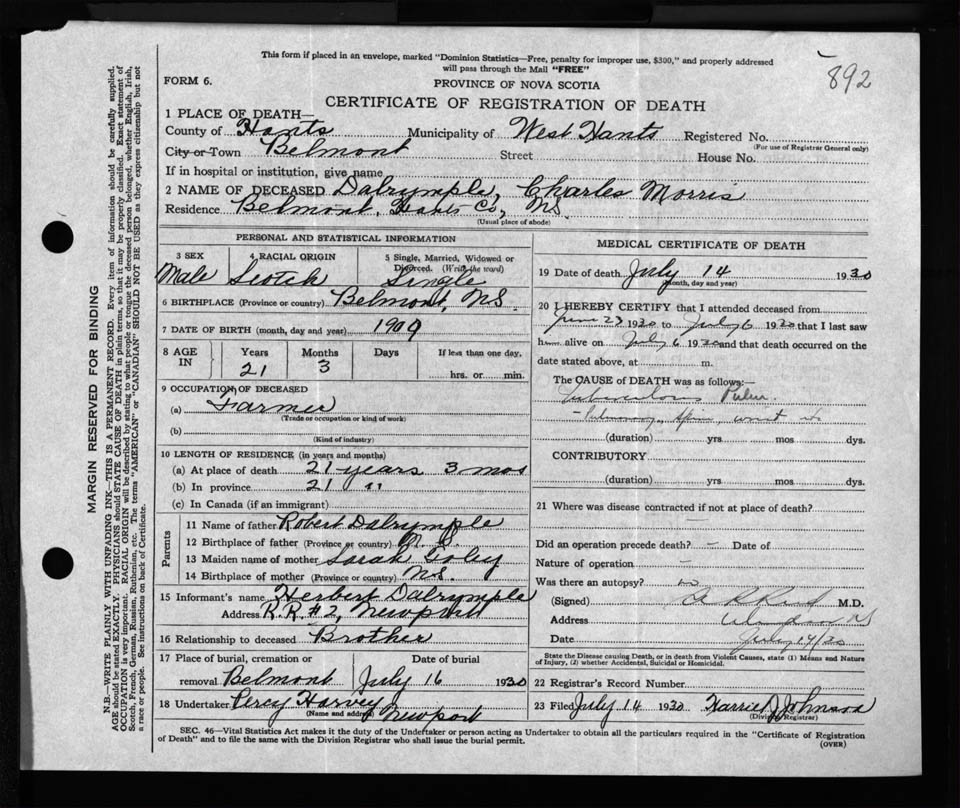 This form if placed in an envelope, marked "Dominion Statistics—Free, penalty for improper use, $300," and properly addressed
will pass through the Mail "FREE"
892
FORM 6.
PROVINCE OF NOVA SCOTIA
CERTIFICATE OF REGISTRATION OF DEATH
1 PLACE OF DEATH—
County of Hants Municipality of West Hants Registered No.
(For use of Registrar General only)
City or Town Belmont Street House No.
If in hospital or institution, give name
2 NAME OF DECEASED Dalrymple, Charles Morris
Residence Belmont, Hants Co, NS.
(Usual place of abode)
PERSONAL AND STATISTICAL INFORMATION
3 SEX 4 RACIAL ORIGIN 5 Single, Married, Widowed or
Divorced. (Write the word)
Male Scotch Single
6 BIRTHPLACE (Province or country) Belmont, NS.
7 DATE OF BIRTH (month, day and year) 1909
8 AGE IN Years Months Days If less than one day,
21 3 hrs. or min.
9 OCCUPATION OF DECEASED
(a) Farmer
(Trade or occupation or kind of work)
(b)
(Kind of industry)
10 LENGTH OF RESIDENCE (in years and months)
(a) At place of death 21 years 3 mos
(b) In province 21 " "
(c) In Canada (if an immigrant)
Parents
11 Name of father Robert Dalrymple
12 Birthplace of father (Province or country) N. S
13 Maiden name of mother Sarah
14 Birthplace of mother (Province or country) NS.
15 Informant's name Herbert Dalrymple
Address R.R. #2, Newport
16 Relationship to deceased Brother
17 Place of burial, cremation or Date of burial
removal Belmont July 16 1930
18 Undertaker Percy Harvey
(Name and address) Newport
MEDICAL CERTIFICATE OF DEATH
19 Date of death July 14 1930
(Month, day and year)
20 I HEREBY CERTIFY that I attended deceased from
June 23 1930 to July 6 1930 that I last saw
him alive on July 6 1930 and that death occurred on the
date stated above, at m.
The CAUSE OF DEATH was as follows:—
Tuberculosis
Pulmonary, Spine,
(duration) yrs mos dys.
CONTRIBUTORY
(duration) yrs mos dys.
21 Where was disease contracted if not at place of death?
Did an operation precede death? – Date of
Nature of operation –
Was there an autopsy? no
(Signed) M.D.
Address
Date July 14/30
State the Disease causing Death, or in death from Violent Causes, state (1) Means and Nature
of Injury, (2) whether Accidental, Suicidal or Homicidal.
22 Registrar's Record Number
23 Filed July 14 1930 Harrie J Johnson
(Division Registrar)
SEC. 46—Vital Statistics Act makes it the duty of the Undertaker or person acting as Undertaker to obtain all the particulars required in the "Certificate of Registration
of Death" and to file the same with the Division Registrar who shall issue the burial permit.
(OVER)
MARGIN RESERVED FOR BINDING
N.B.—WRITE PLAINLY WITH UNFADING INK—THIS IS A PERMANENT RECORD. Every item of information should be carefully supplied.
AGE should be stated EXACTLY. PHYSICIANS should STATE CAUSE OF DEATH in plain terms, so that it may be properly classified. Exact statement of
OCCUPATION is very important. RACIAL ORIGIN will be described by stating to what people or tongue the deceased person belonged, whether English, Irish,
Scotch, French, German, Russian, Ruthenian, etc. The terms "AMERICAN" or "CANADIAN" SHOULD NOT BE USED as they express citizenship but not
a race or people. See instructions on back of Certificate.